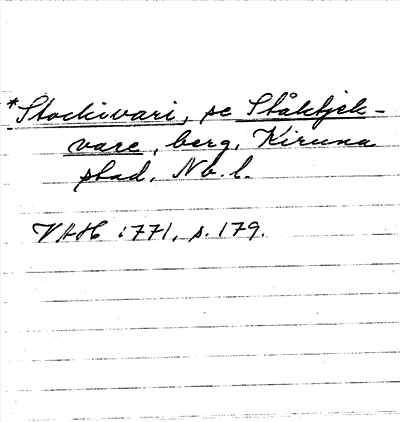 *Stockivari, se Ståktjek-
vare, berg, Kiruna
stad, Nb. l.
VAH 1771, s. 179.